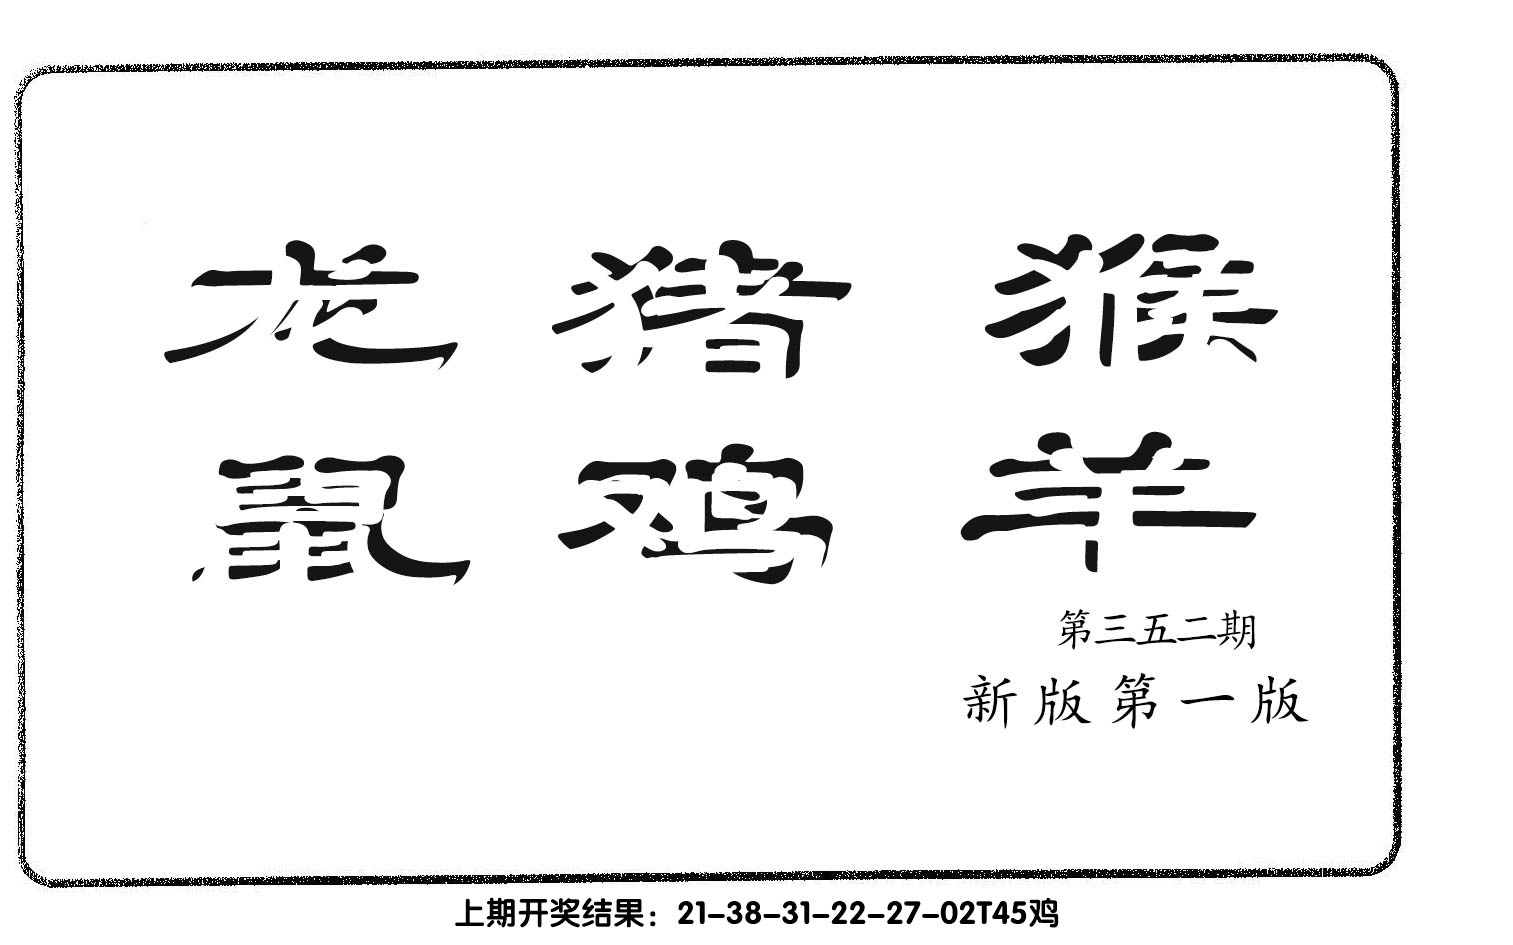 龙 猪 猴
鼠 鸡 羊
第三五二期
新版第一版
上期开奖结果：21-38-31-22-27-02T45鸡